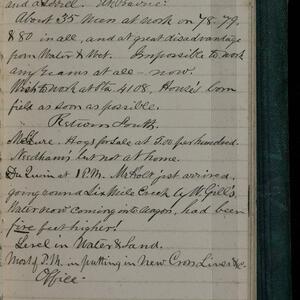 and
About 35 men at work on 78. 79.
& 80 in all, and at great disadvantage
from Water & Wet. Impossible to work
any teams at all – now.
Wish to work at Sta 4108, House's Corn
field as soon as possible.
Return South.
McLure. Hogs for Sale at 5.00 per hundred.
Needham's but not at home.
Du Quoin at 1 P.M. McHolt just arrived,
going round Six Mile Creek by McGill's
Water now coming into wagon, had been
five feet higher!
Level in Water & Sand.
Most of P.M. in putting in New Cross Lines &c.
Office